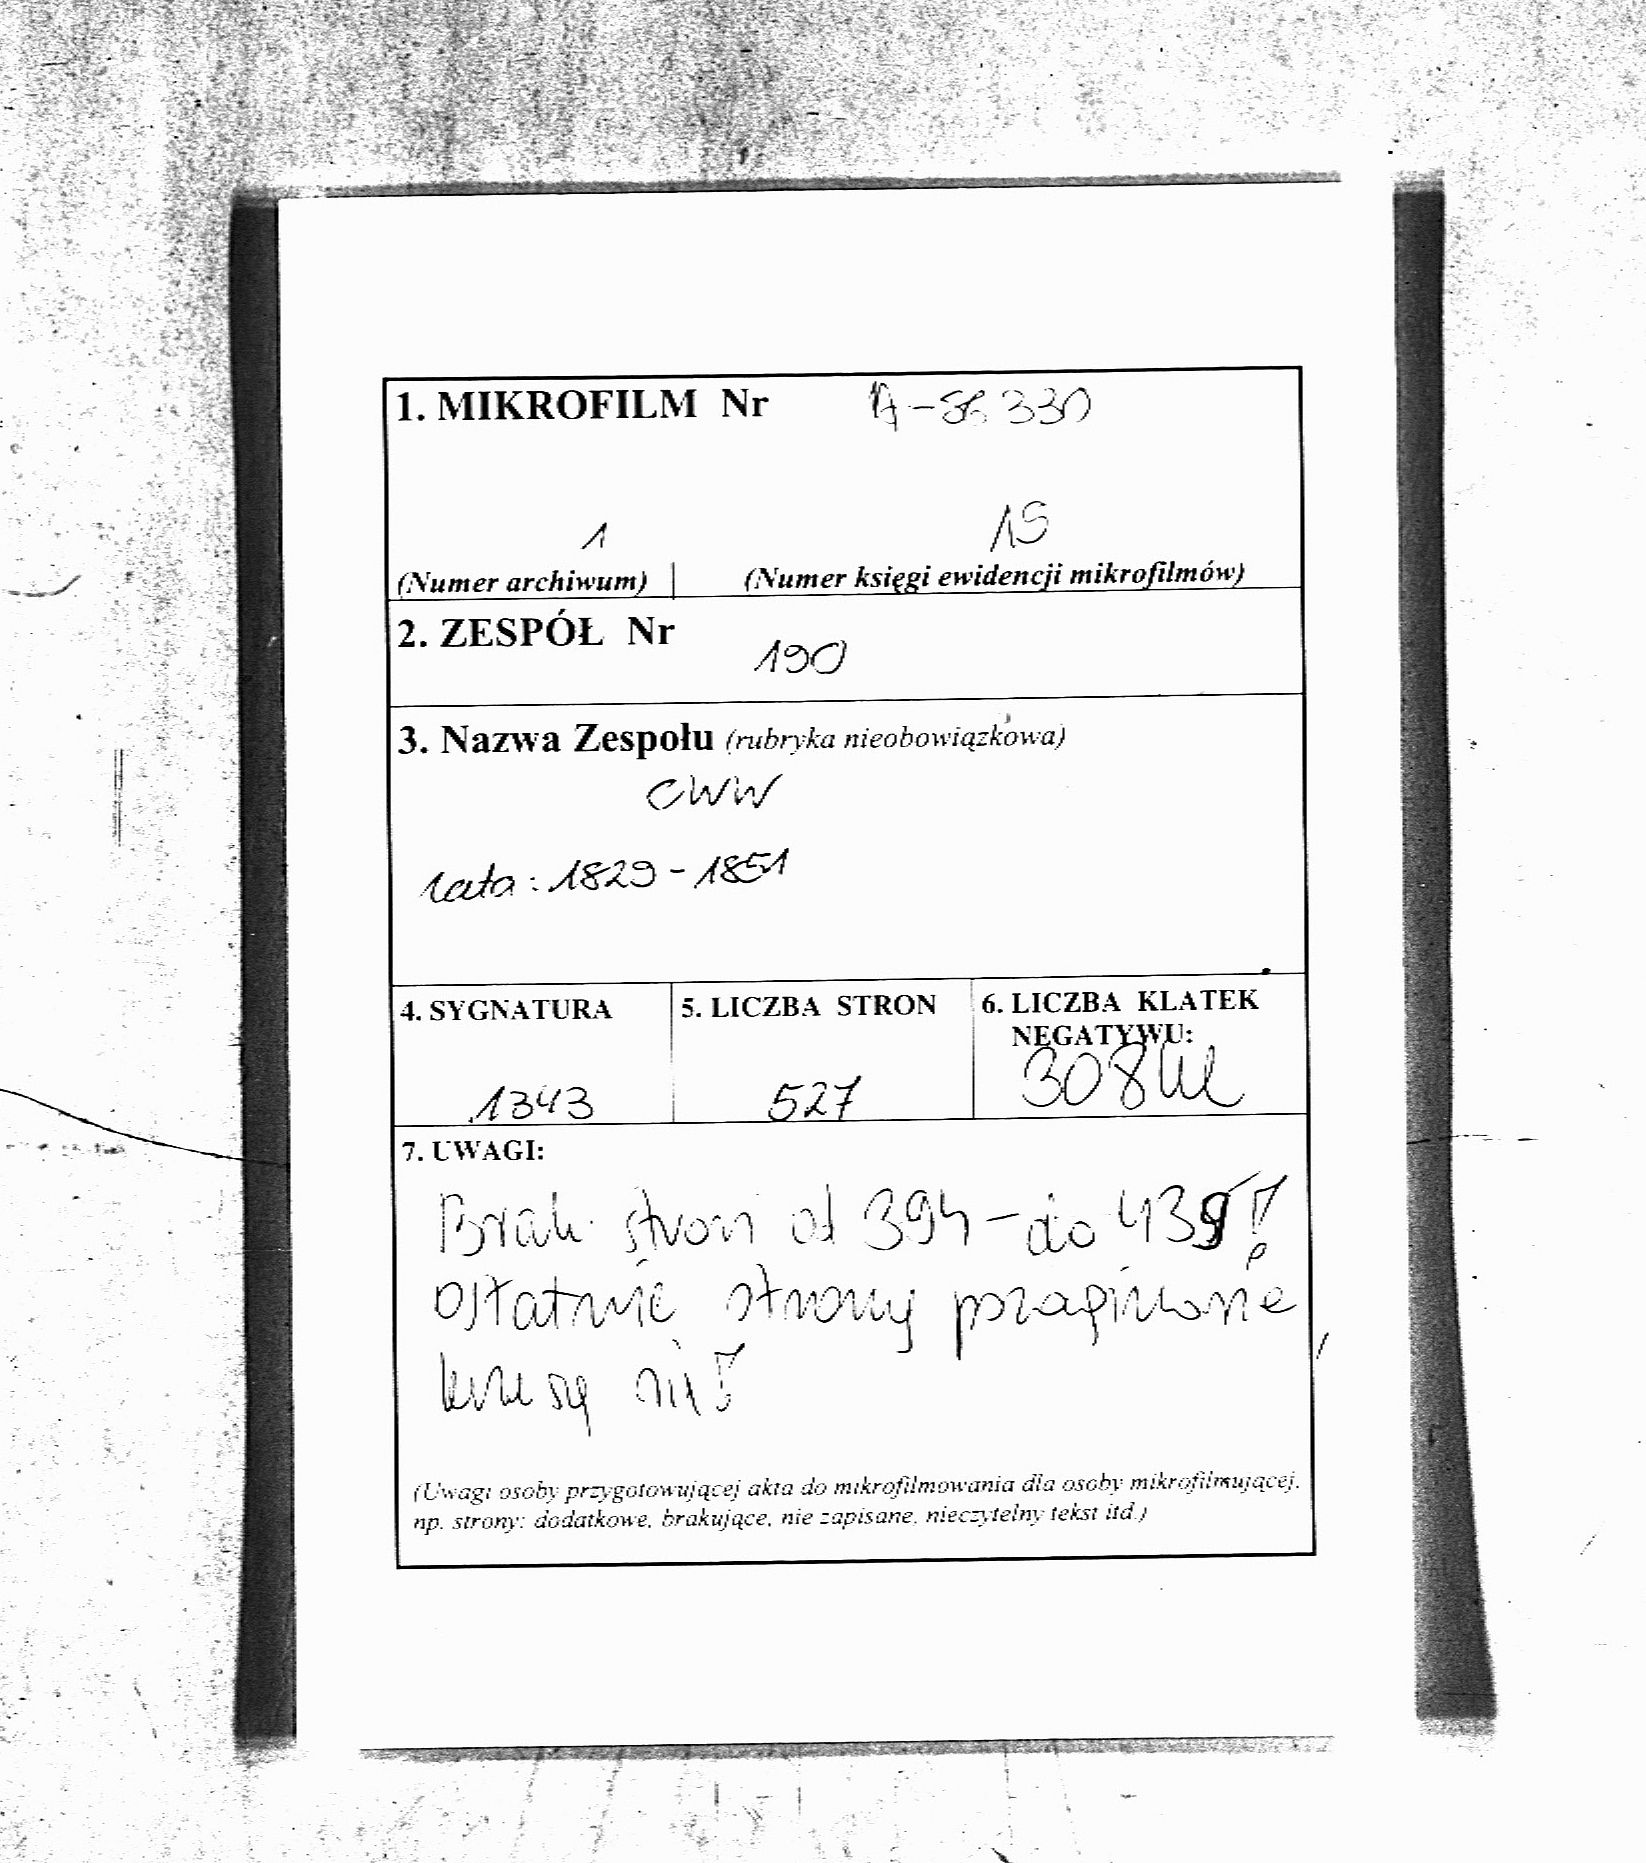 1. MIKROFILM Nr 330
1 15
(Numer archiwum) (Numer księgi ewidencji mikrofilmów)
2. ZESPÓŁ Nr
190
3. Nazwa Zespołu (rubryka nieobowiązkowa)
CWW
lata: 1829-1851
4. SYGNATURA 5. LICZBA STRON 6. LICZBA KLATEK
NEGATYWU:
1343 527 308 kl
7. UWAGI:
Brak stron od 394 - do 439!
ostatnie strony
nić
(Uwagi osoby przygotowującej akta do mikrofilmowania dla osoby mikrofilmującej,
np. strony: dodatkowe, brakujące, nie zapisane, nieczytelny tekst itd.)